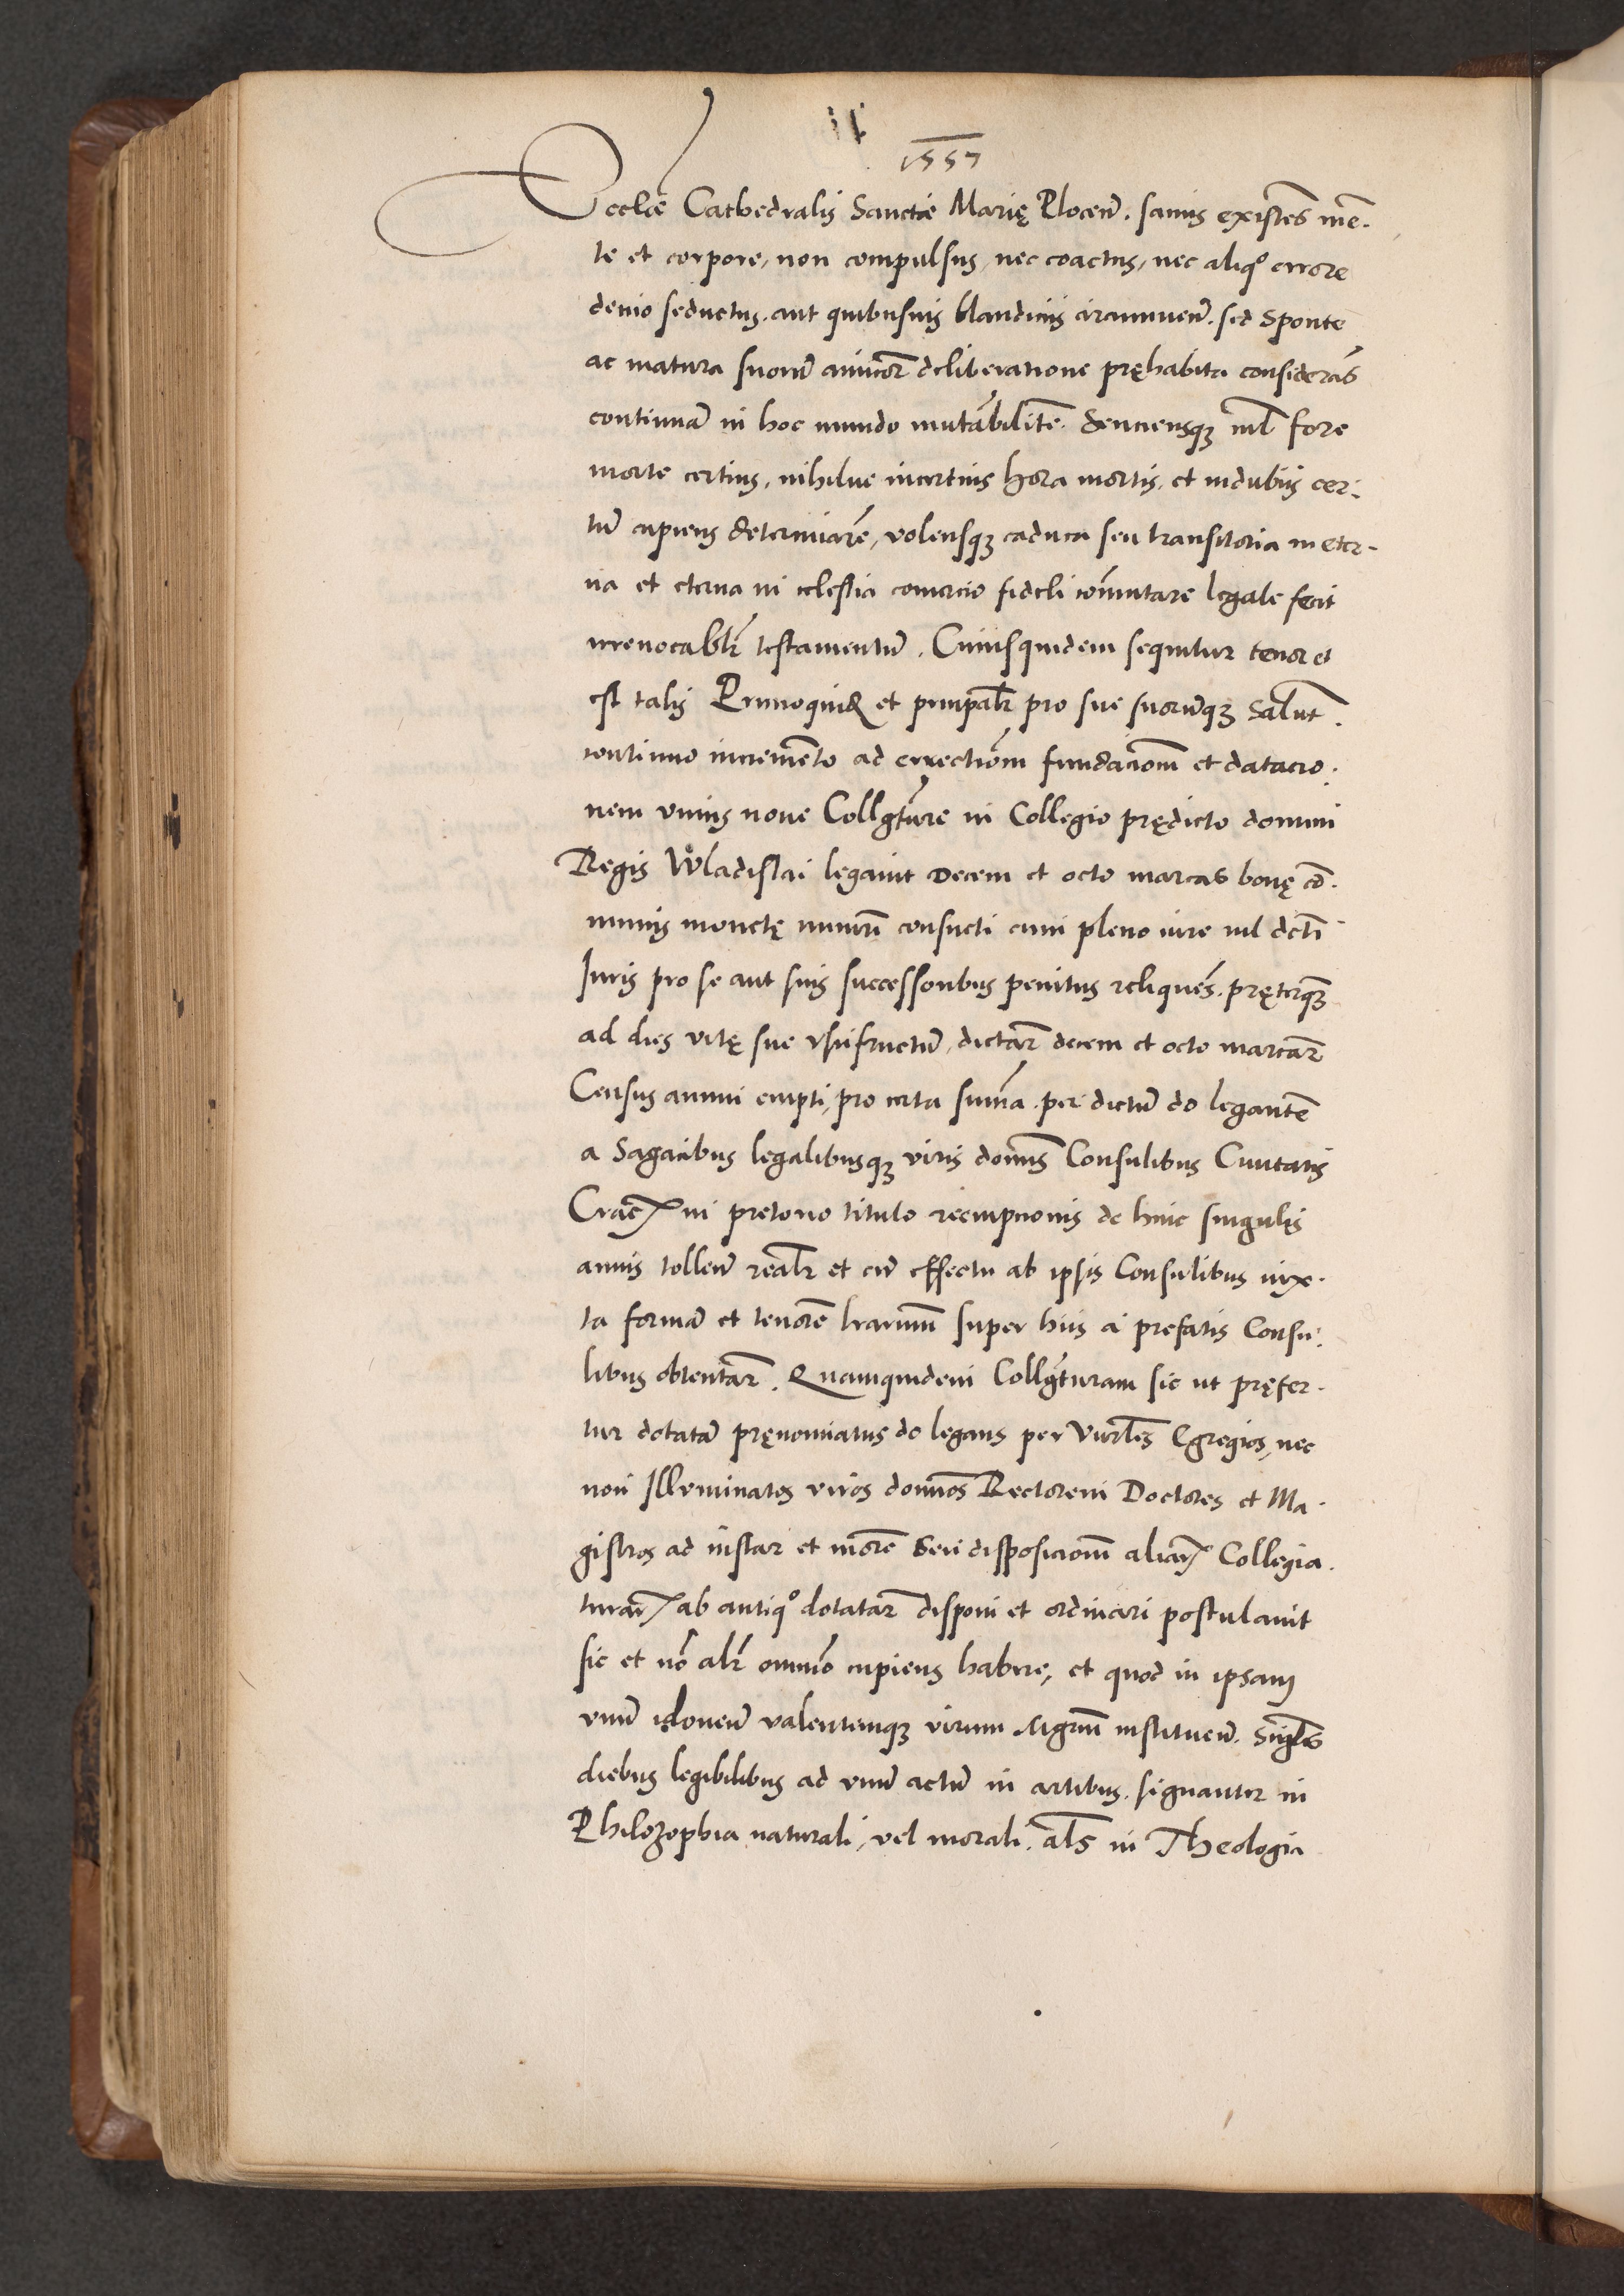 1557
Eccłæ Cathedralis Sanctæ Marię Plocen̄. sanus existēs mē-
te et corpore, non compulsus, nec coactus, nec aliqͦ errore
deuio seductus, aut quibusuis blandiciis circumuen̄. sed Sponte
ac matura suorū amicoꝝ deliberatione pręhabita considerās
continuā in hoc mundo mutabilitē. Senciensqꝫ nil fore
morte certius, nihilue incertius hora mortis, et indubiis cer-
tū cupiens determinare, volensqꝫ caduca seu transitoria in eter-
na et eterna in celestia comercio fideli cōmutare legale fecit
irreuocabłr testamentū. Cuiusquidem sequitur tenor et
est talis Primoquidē et principałr pro sue suorūqꝫ Salut̄.
continuo incremēto ad errectiōm fundaciōm et datacio-
nem vnius noue Collḡture in Collegio prędicto domini
Regis Wladislai legauit Decem et octo marcas bonę cō-
munis monetę numeri consueti cum pleno iure nil dcti
Iuris pro se aut suis successoribus penitus reliquēs. pręterqꝫ
ad dies vitę sue vsufructū, dictaꝝ decem et octo marcaꝝ
Census annui empti, pro certa sūma. per dictū do legantē
a Sagacibus legalibusqꝫ viris domīs Consulibus Ciuitatis
Crac̄ in pretorio titulo reempcionis de hinc singulis
annis tollen̄ reałr et cū effectu ab ipsis Consulibus iux-
ta formā et tenorē lrarum super hiis a prefatis Consu-
libus obtentaꝝ. Quamquidem Collḡturam sic ut pręfer-
tur dotatā pręnominatus do legans per Viērles Egregios, nec
non Illuminatos viros domīos Rectorem Doctores et Ma-
gistros ad instar et morē Seu disposiciōm aliaꝝ Collegia-
turaꝝ ab antiqͦ dotataꝝ disponi et ordinari postulauit
sic et nō ałr omnīo cupiens habere, et quod in ipsam
vnū idoneū valentemqꝫ virum Mgrm̄ instituen̄. Singłis
diebus legibilibus ad vnū actū in artibus. signanter in
Philozophia naturali, vel morali. ałs in Theologia